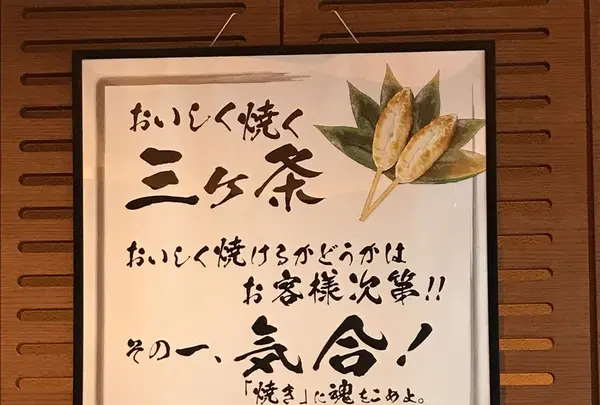 おいしく焼く
三ヶ条
おいしく焼けるかどうかは
お客様次第!!
その一、気合!
「焼き」に魂をこめよ。